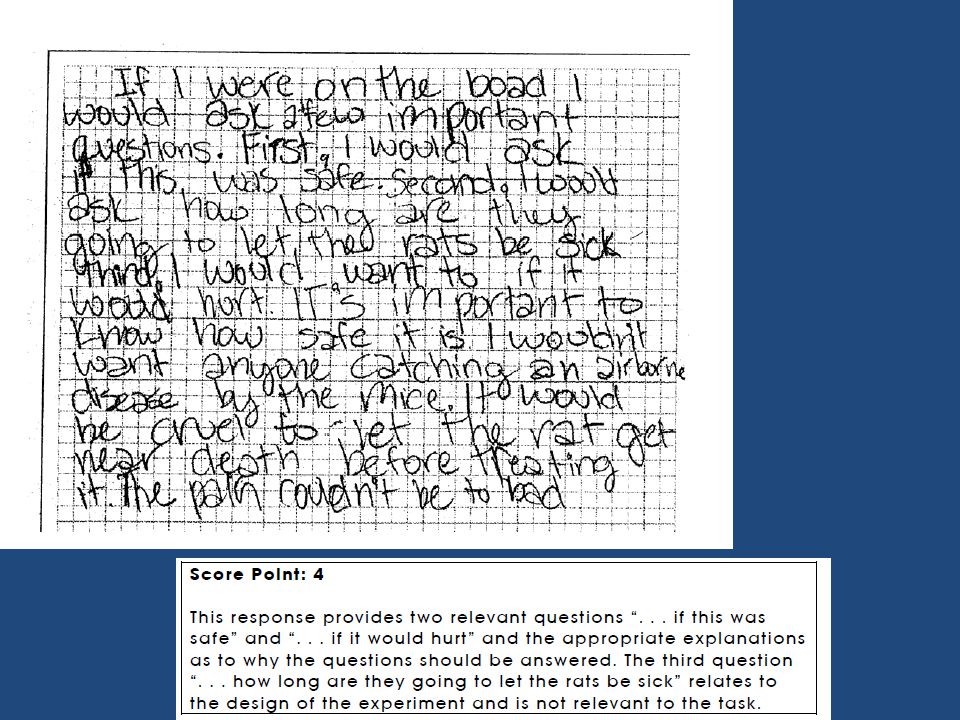 If I were on the boad I
would ask a few important
questions. First, I would ask
if this was safe. Second, I would
ask how long are they
going to let the rats be sick
Third, I would want to if it
would hurt. IT's important to
know how safe it is I wouldn't
want anyone catching an airborne
disease by the mice. It would
be cruel to let the rat get
near death before treating
it. The pain couldn't be to bad
Score Point: 4
This response provides two relevant questions “. . . if this was
safe” and “. . . if it would hurt” and the appropriate explanations
as to why the questions should be answered. The third question
“. . . how long are they going to let the rats be sick” relates to
the design of the experiment and is not relevant to the task.